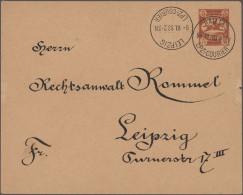 LEIPZIG
Herrn
Rechtsanwalt Rommel
Leipzig
Fr.
Turnerstr. 7 III